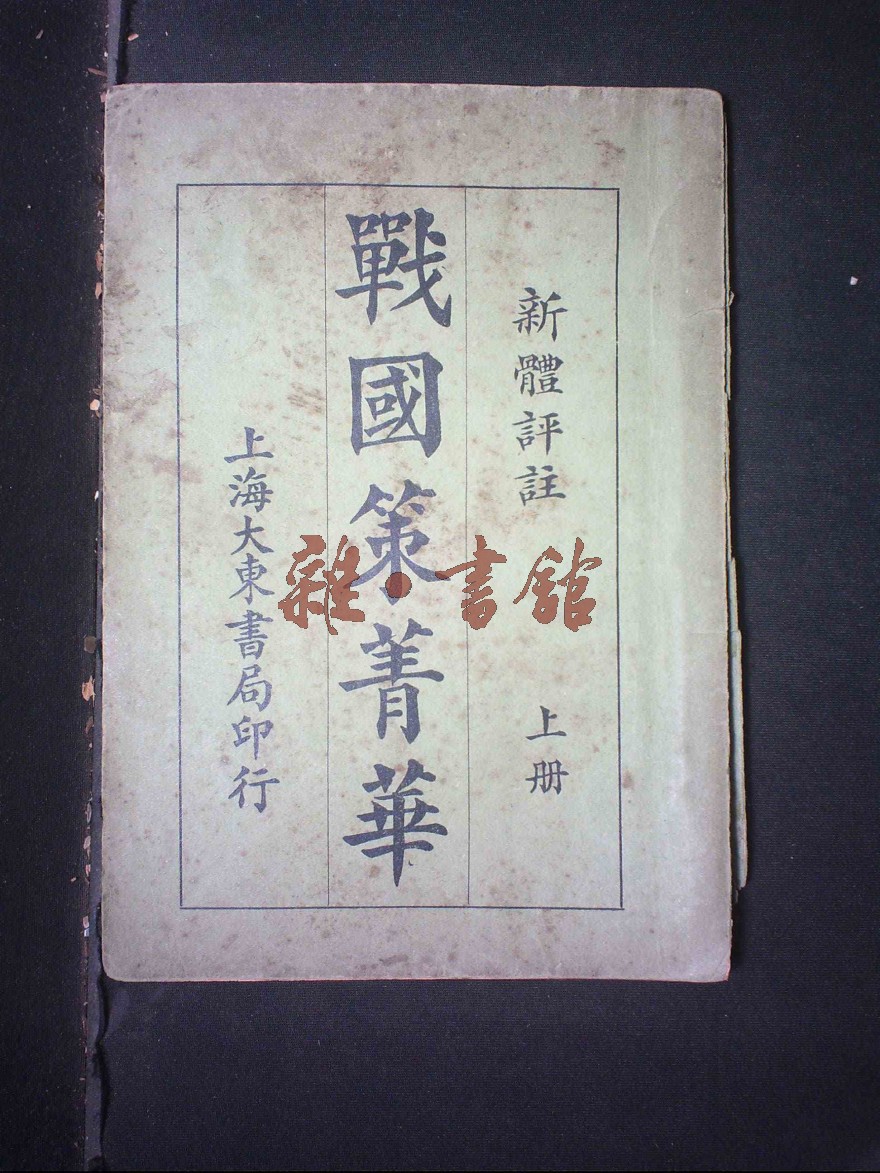 新體評註
上册
戰國策菁華
上海大東書局印行
雜·書館